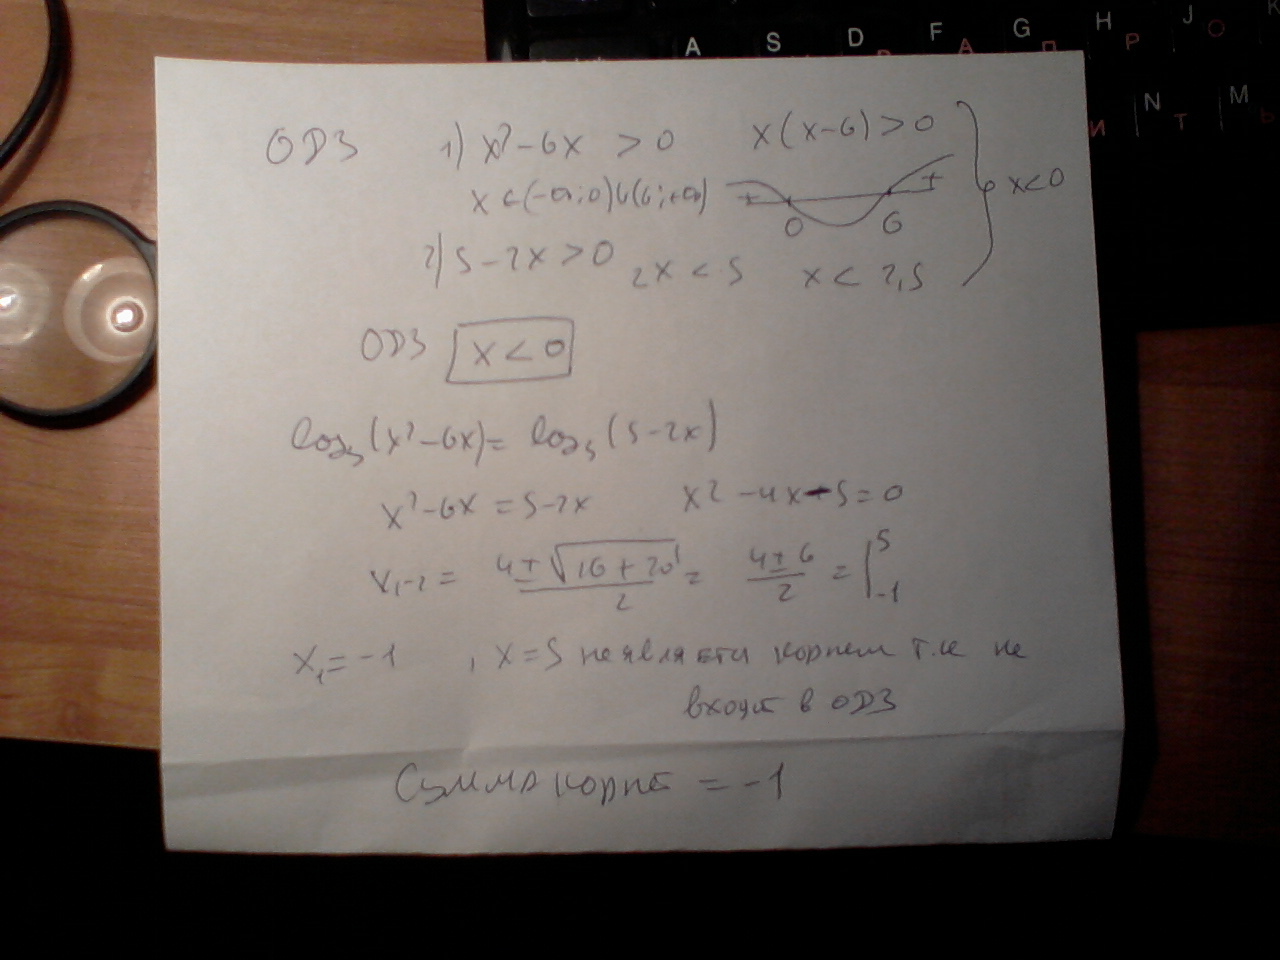 A S D F G H J K
А П Р О
N M
И Т Ь
ОДЗ 1) x² - 6x > 0 x(x-6) > 0
x < (-∞; 0) ∪ (6; +∞) + + x < 0
0 6
2) 5 - 2x > 0 2x < 5 x < 2,5
ОДЗ x < 0
log₅(x² - 6x) = log₅(5 - 2x)
x² - 6x = 5 - 2x x² - 4x - 5 = 0
x₁₋₂ = (4 ± √(16 + 20))/2 = (4 ± 6)/2 = | 5 -1
x₁ = -1 , x = 5 не является корнем т.к не
входит в ОДЗ
Сумма корней = -1